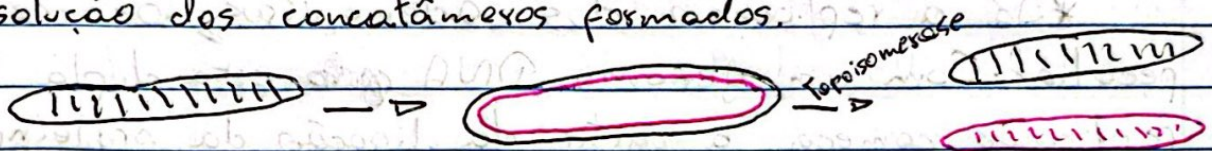 solução dos concatâmeros formados.
Topoisomerase